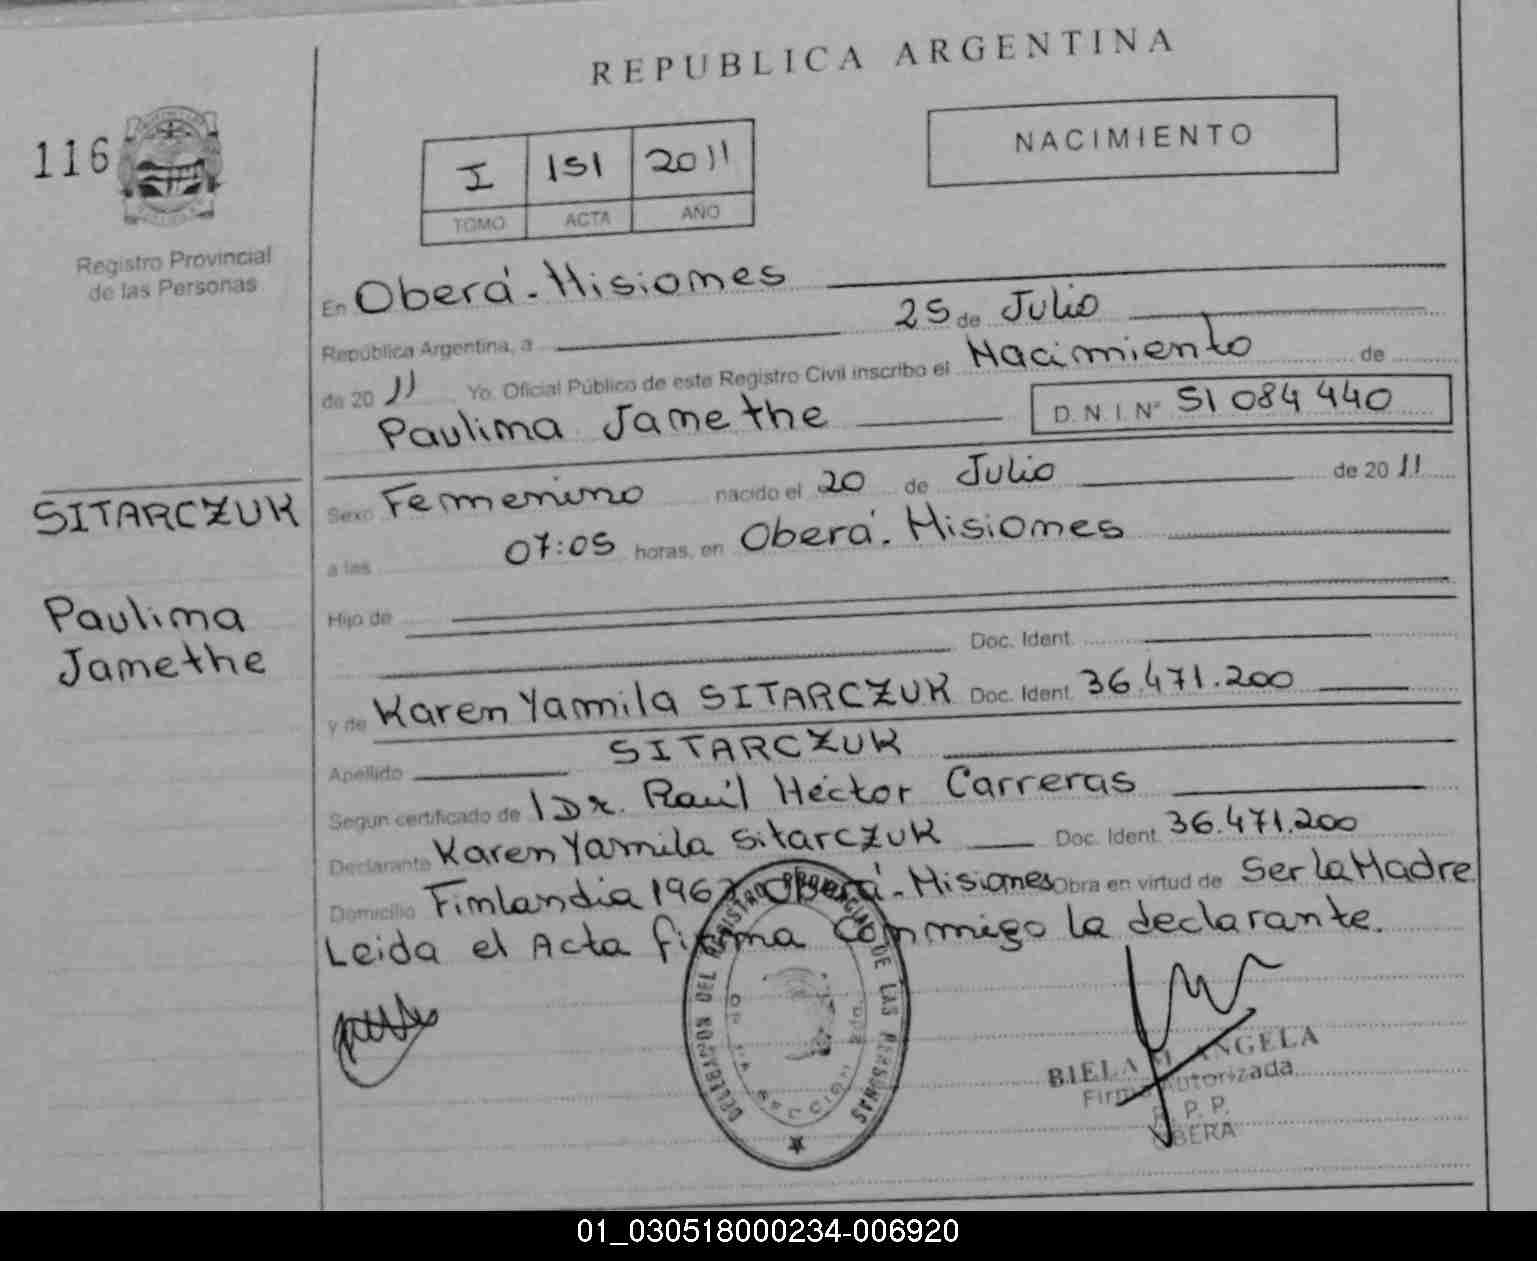 REPUBLICA ARGENTINA
116
NACIMIENTO
I 151 2011
TOMO ACTA AÑO
Registro Provincial
de las Personas
En Oberá - Misiones
República Argentina, a 25 de Julio
de 20 11 Yo. Oficial Público de este Registro Civil inscribo el Nacimiento de
Paulina Janethe D.N.I. Nº 51 084 440
SITARCZUK
Paulina
Janethe
Sexo Femenino nacido el 20 de Julio de 20 11
a las 07:05 horas, en Oberá - Misiones
Hijo de
Doc. Ident.
y de Karen Yamila SITARCZUK Doc. Ident. 36.471.200
Apellido SITARCZUK
Segun certificado de Dr. Raúl Héctor Carreras
Declarante Karen Yamila Sitarczuk Doc. Ident. 36.471.200
Domicilio Finlandia 1967 Oberá - Misiones Obra en virtud de Ser la Madre
Leida el Acta firma Conmigo la declarante.
DELEGACION DEL REGISTRO PROVINCIAL DE LAS PERSONAS
BIELA M ANGELA
Firma Autorizada
R. P. P.
OBERA
01_030518000234-006920